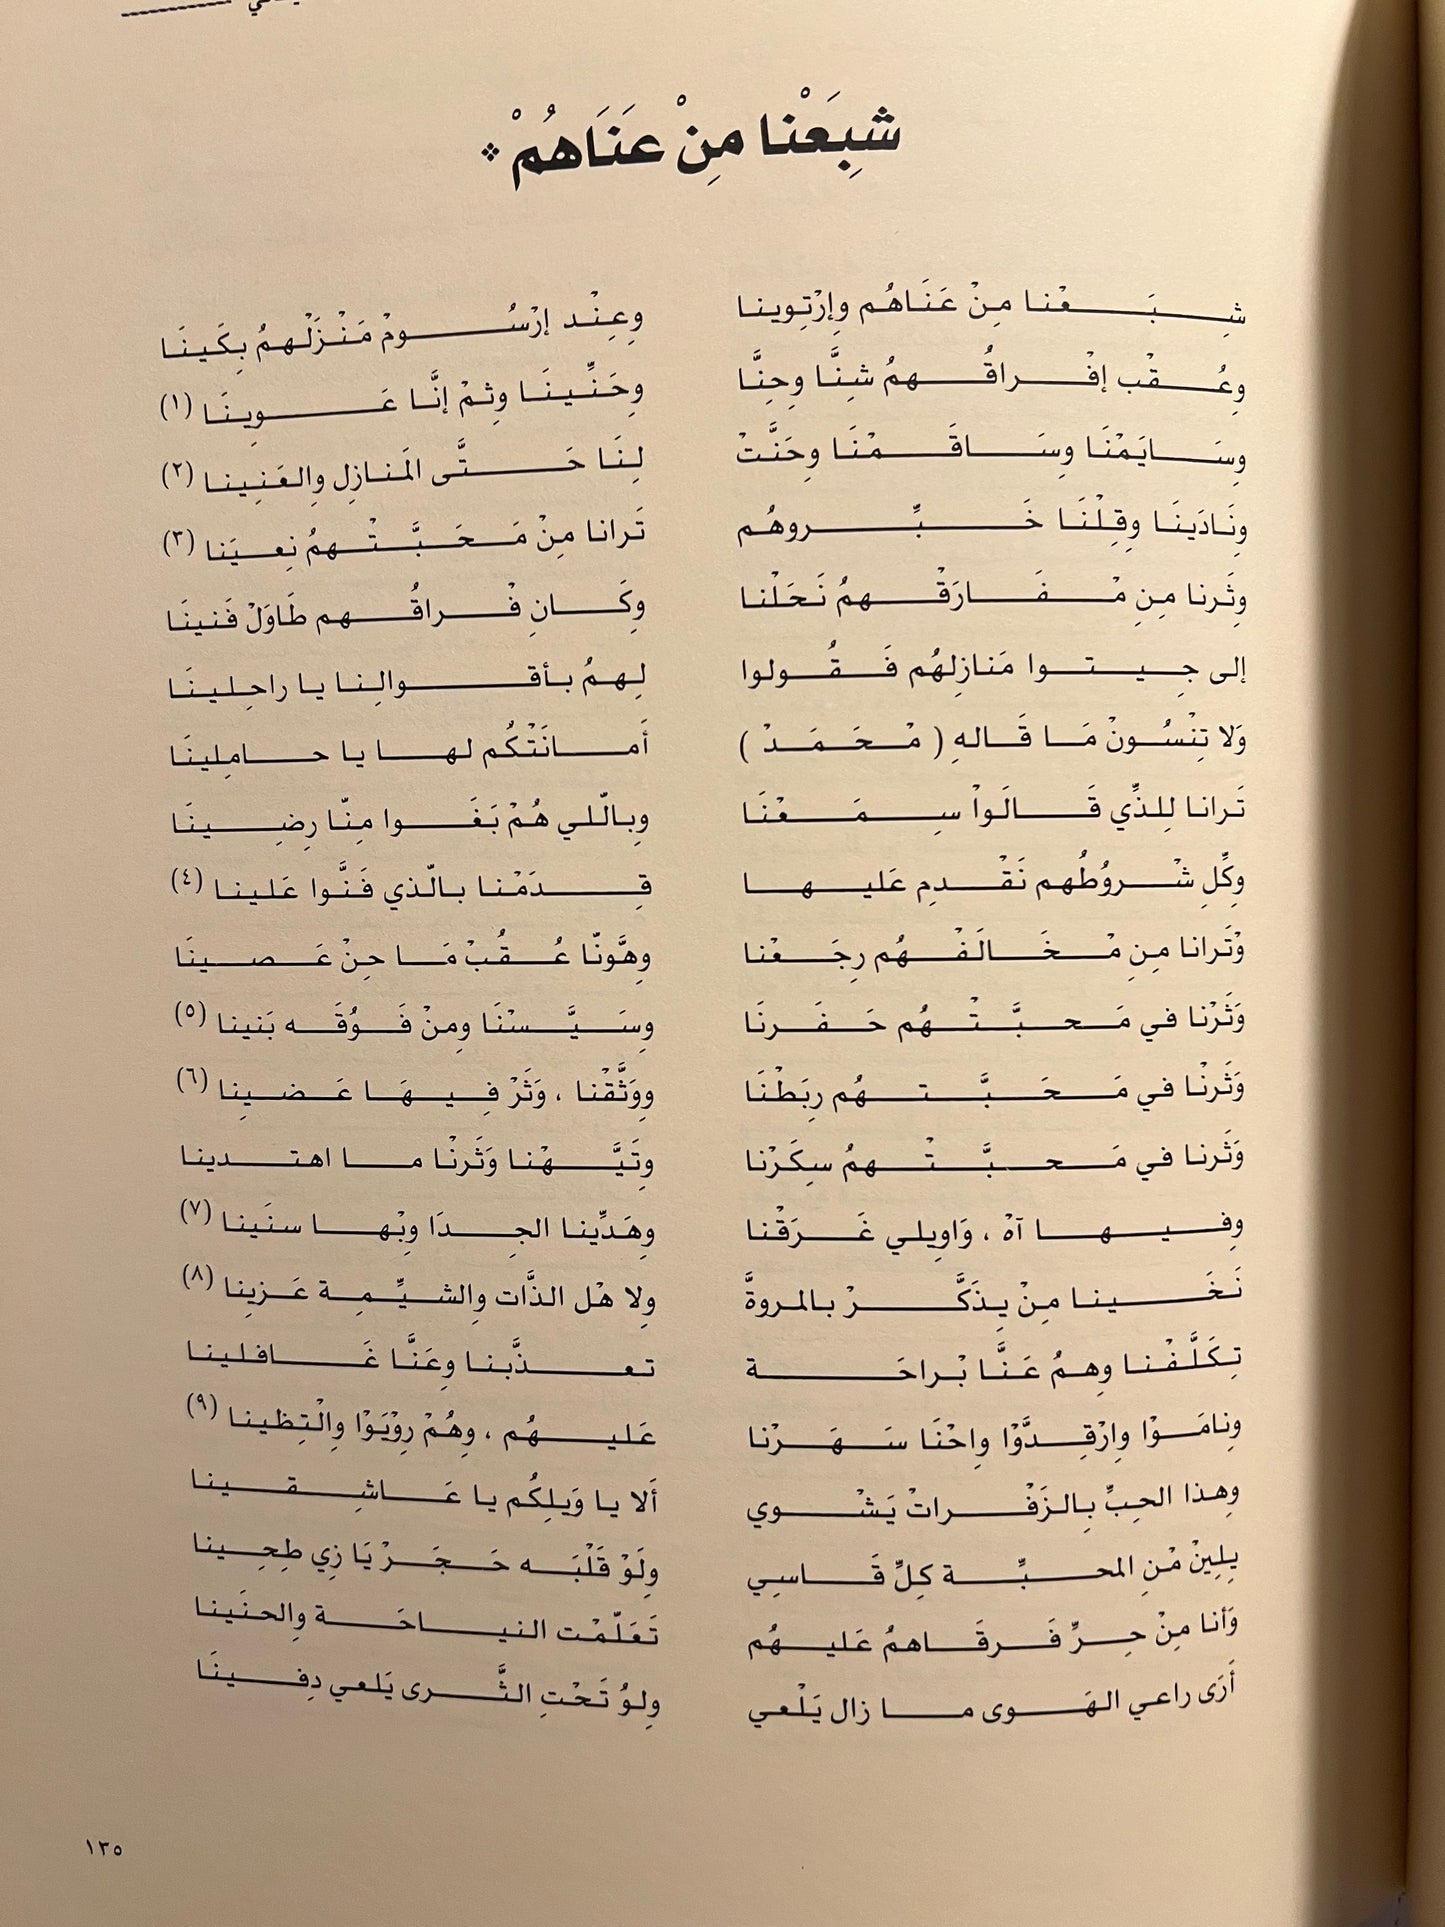 شِبَعْنا مِنْ عَنَاهُمْ
شِبَعْنا مِنْ عَنَاهُم وِإرْتِوينا وِعِنْد إرْسُومْ مَنْزَلْهمُ بِكَينَا
وِعُقْب إفْراقُهمُ شِنَّا وِحِنَّا وِحَنِّينَا وِثمْ إنَّا عَوِينَا (١)
وِسَايَمْنَا وِسَاقَمْنَا وِحَنَّتْ لِنَا حَتَّى المَنازِل وِالعَنِينا (٢)
ونَادَينَا وِقِلْنَا خَبِّروهُم تَرانا مِنْ مَحَبَّتْهمُ نِعيَنا (٣)
وِثَرنا مِنِ مْفَارَقْهمُ نَحَلْنا وِكَانِ فْراقُهم طَاوَلْ فَنينَا
إلى جِيتوا مَنازِلهُم فَقُولوا لِهمُ بأقوالِنا يا راحِلينَا
وَلا تِنْسُونْ مَا قَالهِ ( مْحَمَدْ ) أَمانَتْكُم لها يا حامِلينَا
تَرانا لِلذِّي قَالَواْ سِمَعْنَا وِبالّلي هُمْ بَغَوا مِنّا رِضِينَا
وِكِّلِ شْروُطُهم نَقْدِم عَليها قِدَمْنا بالّذي فَنَّوا عَلينا (٤)
وْتَرانا مِنِ مْخَالَفْهُم رِجَعْنا وِهَّونّا عُقُبْ مَا حِنْ عَصينَا
وَثَرْنا في مَحبَّتْهُم حَفَرنَا وِسَيَّسْنَا ومِنْ فَوُقَه بَنينا (٥)
وَثَرنْا في مَحَبَّتهُم رِبَطْنَا ووَثَّقْنا ، وَثَرْ فِيهَا عَضينِا (٦)
وَثَرنا في مَحبَّتْهمُ سكَرْنا وِتَيَّهْنا وَثَرنْا ما اهتدينا
وِفيها آهْ ، وَاوِيلي غَرَقْنا وِهَدِّينا الجِدَا وِبْها سنَينا (٧)
نَخَينا مِنْ يِذَكَّرْ بالمروةَّ وِلا هْل الذَّات وِالشيِّمِة عَزينِا (٨)
تِكَلَّفْنا وِهمُ عَنَّا بْراحَة تعذَّبنا وِعَنَّا غَافلينا
ونِامَوْا وِارْقِدَّوْا وِاحْنَا سَهَرْنا عَليهُم ، وِهُمْ رِوْيَوْا وِالْتِظينا (٩)
وِهذا الحِبِّ بِالزَفْراتْ يَشْوي ألا يا وَيلِكُم يا عَاشِقينا
يِلِينْ مْنِ المحبِّة كِلِّ قَاسِي ولَوْ قَلْبَه حَجَرْ يَا زِي طِحِينا
وَأنا مِنْ حِرِّ فَرقَاهمُ عَليهُم تَعَلّمْت النياحَة وِالحنَينا
أَرَى راعي الهَوى ما زال يَلْعي وِلوُ تَحْتِ الثَّرى يَلعي دِفِينَا
١٣٥